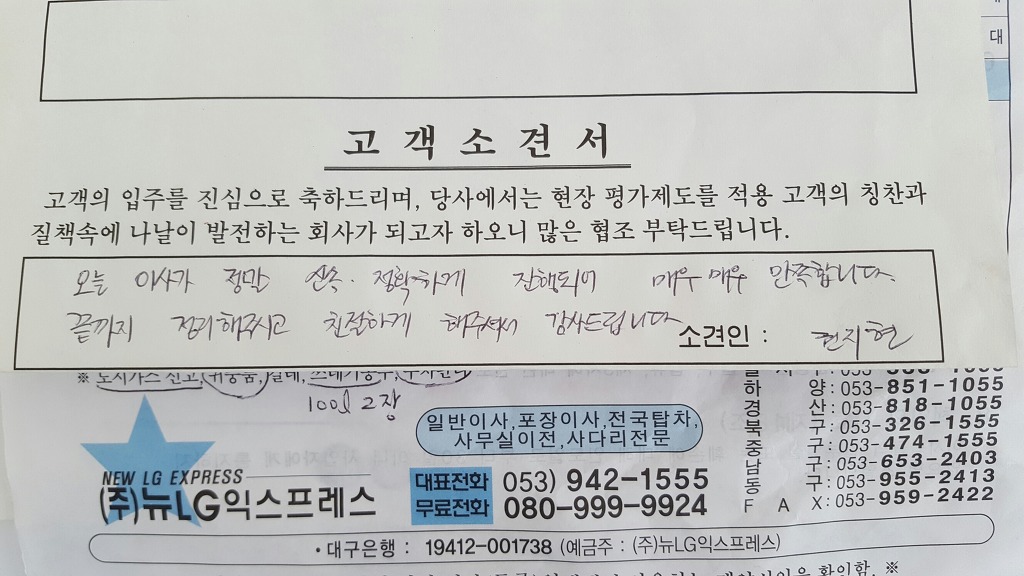 대
고객소견서
고객의 입주를 진심으로 축하드리며, 당사에서는 현장 평가제도를 적용 고객의 칭찬과
질책속에 나날이 발전하는 회사가 되고자 하오니 많은 협조 부탁드립니다.
오늘 이사가 정말 신속·정확하게 진행되어 매우 매우 만족합니다.
끝까지 정리해주시고 친절하게 해주셔서 감사드립니다
소견인 : 전지현
※ 도시가스 신고, 귀중품,
100ℓ 2장
일반이사, 포장이사, 전국탑차,
사무실이전, 사다리전문
NEW LG EXPRESS
(주)뉴LG익스프레스
대표전화 053) 942-1555
무료전화 080-999-9924
하 양 : 053-851-1055
경 산 : 053-818-1055
북 구 : 053-326-1555
중 구 : 053-474-1555
남 구 : 053-653-2403
동 구 : 053-955-2413
F A X : 053-959-2422
• 대구은행 : 19412-001738 (예금주 : (주)뉴LG익스프레스)